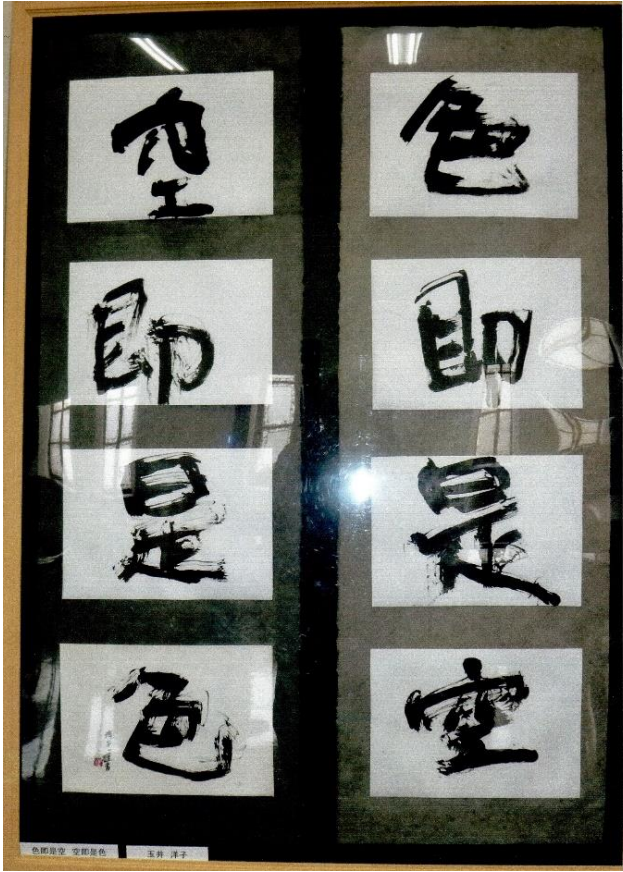 色
即
是
空
空
即
是
色
色即是空 空即是色
玉井 洋子